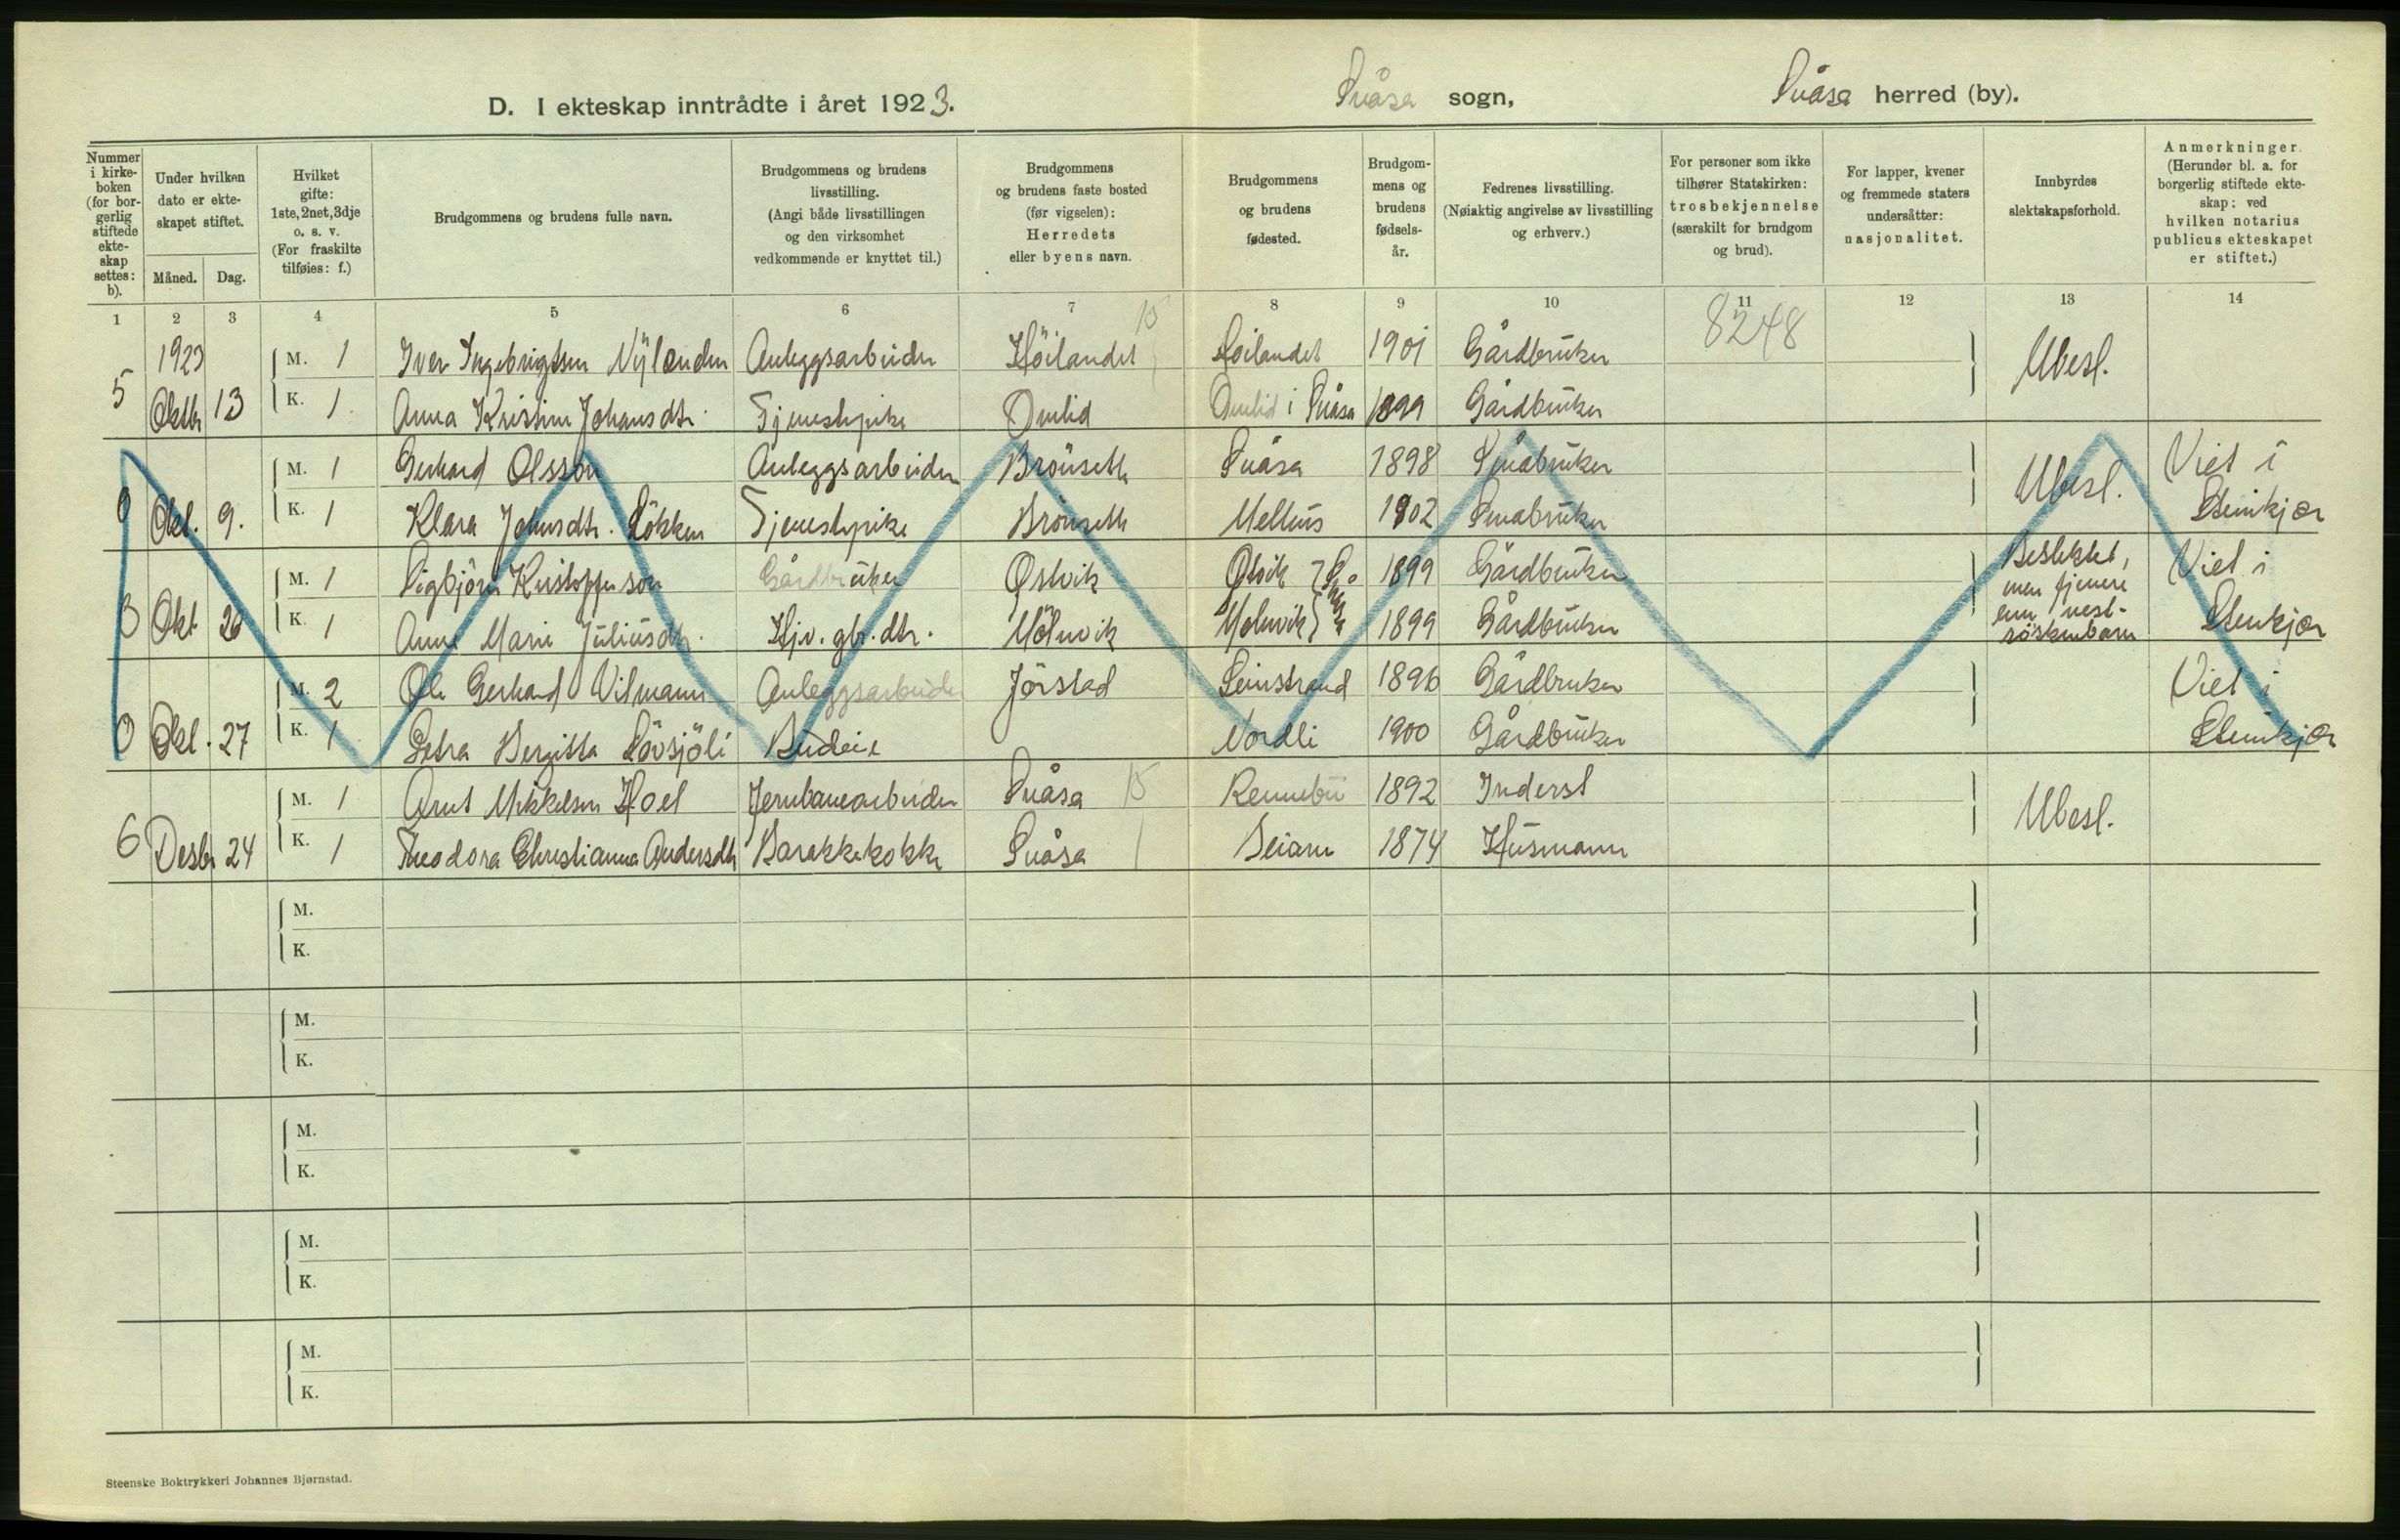 D. I ekteskap inntrådte i året 1923. Snåsa sogn, Snåsa herred (by).
Nummer i kirkeboken (for borgerlig stiftede ekteskap settes: b).
Under hvilken dato er ekteskapet stiftet.
Måned. Dag.
Hvilket gifte: 1ste, 2net, 3dje o. s. v. (For fraskilte tilføies: f.)
Brudgommens og brudens fulle navn.
Brudgommens og brudens livsstilling. (Angi både livsstillingen og den virksomhet vedkommende er knyttet til.)
Brudgommens og brudens faste bosted (før vigselen): Herredets eller byens navn.
Brudgommens og brudens fødested.
Brudgommens og brudens fødselsår.
Fedrenes livsstilling. (Nøiaktig angivelse av livsstilling og erhverv.)
For personer som ikke tilhører Statskirken: trosbekjennelse (særskilt for brudgom og brud).
For lapper, kvener og fremmede staters undersåtter: nasjonalitet.
Innbyrdes slektskapsforhold.
Anmerkninger. (Herunder bl. a. for borgerlig stiftede ekteskap: ved hvilken notarius publicus ekteskapet er stiftet.)
1 2 3 4 5 6 7 8 9 10 11 12 13 14
15 8248
1923 M. 1 Iver Ingebrigtsen Nÿlanden Anleggsarbeider Höilandet Höilandet 1901 Gårdbrüker Ubesl.
5 Oktbr 13 K. 1. Anna Kristine Johansdtr. Tjenestepike Omlid Omlid i Snåsa 1899 Gårdbrüker
M. 1 Gerhard Olsson Anleggsarbeider Brönseth Snåsa 1898 Småbrüker Ubesl. Viet i
Okt. 9. K. 1 Klara Johnsdtr. Lökken Tjenestepike Brönseth Melhus 1902 Småbrüker Steinkjær
M. 1 Sigbjörn Kristoffersön Gårdbrüker Östvik Östvik } Snåsa 1899 Gårdbrüker Beslektet, men fjernere enn nest-söskenbarn Viet i
Okt. 20 K. 1 Anne Marie Juliusdtr. Hjv. gbr. dtr. Mölnvik Molnvik } 1899 Gårdbrüker Steinkjær
M. 2 Ole Gerhard Vilmann Anleggsarbeider Jörstad Leinstrand 1896 Gårdbruker Viet i
Okt. 27 K. 1 Petra Bergitta Lövsjöli Budeie Nordli 1900 Gårdbrüker Steinkjær
M. 1 Arnt Mikkelsen Hoel Jernbanearbeider Snåsa 15 Rennebü 1892 Inderst Ubesl.
6 Desbr 24 K. 1 Theodora Christianna Andersdtr Barakkekokke Snåsa 1 Beiarn 1874 Husmann
M.
K.
M.
K.
M.
K.
M.
K.
M.
K.
Steenske Boktrykkeri Johannes Bjørnstad.